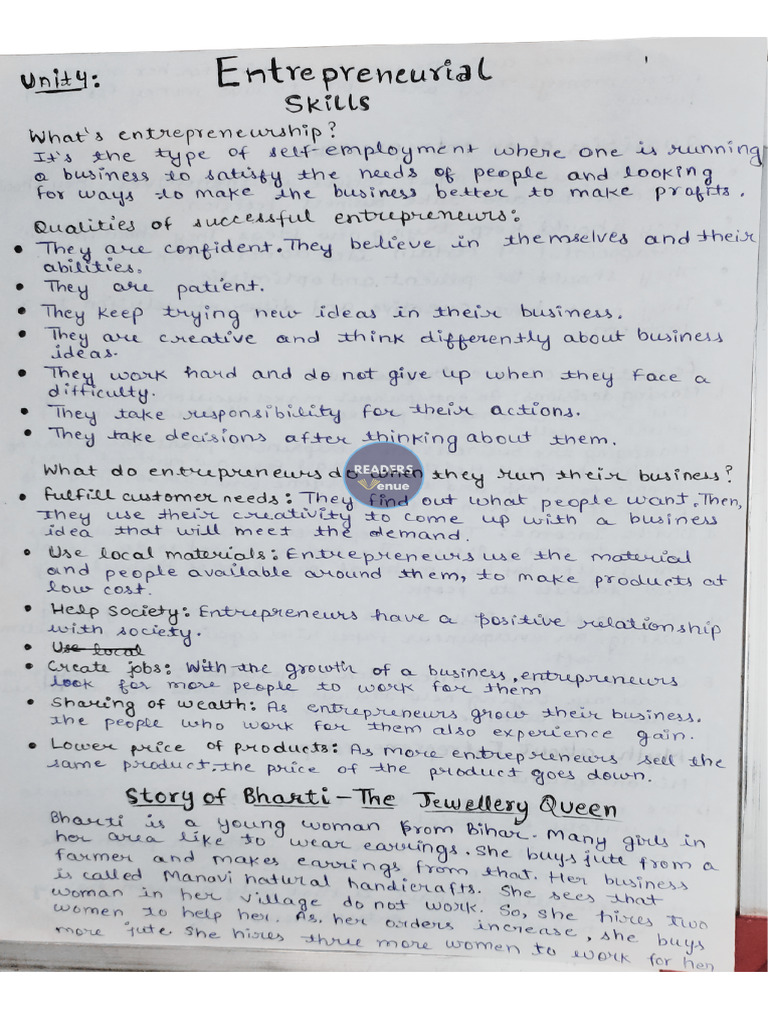 Unit4:
Entrepreneurial
Skills
What's entrepreneurship?
It's the type of self-employment where one is running
a business to satisfy the needs of people and looking
for ways to make the business better to make profits.
Qualities of successful entrepreneurs:
• They are confident. They believe in themselves and their
abilities.
• They are patient.
• They keep trying new ideas in their business.
• They are creative and think differently about business
ideas.
• They work hard and do not give up when they face a
difficulty.
• They take responsibility for their actions.
• They take decisions after thinking about them.
What do entrepreneurs do when they run their business?
READERS
Venue
• Fulfill customer needs: They find out what people want. Then,
they use their creativity to come up with a business
idea that will meet the demand.
• Use local materials: Entrepreneurs use the material
and people available around them, to make products at
low cost.
• Help society: Entrepreneurs have a positive relationship
with society.
• Use local
• Create jobs: With the growth of a business, entrepreneurs
look for more people to work for them
• Sharing of wealth: As entrepreneurs grow their business.
the people who work for them also experience gain.
• Lower price of products: As more entrepreneurs sell the
same product, the price of the product goes down.
Story of Bharti - The Jewellery Queen
Bharti is a young woman from Bihar. Many girls in
her area like to wear earrings. She buys jute from a
farmer and makes earrings from that. Her business
is called Manavi natural handicrafts. She sees that
woman in her village do not work. So, she hires two
women to help her. As her orders increase, she buys
more jute. She hires three more women to work for her